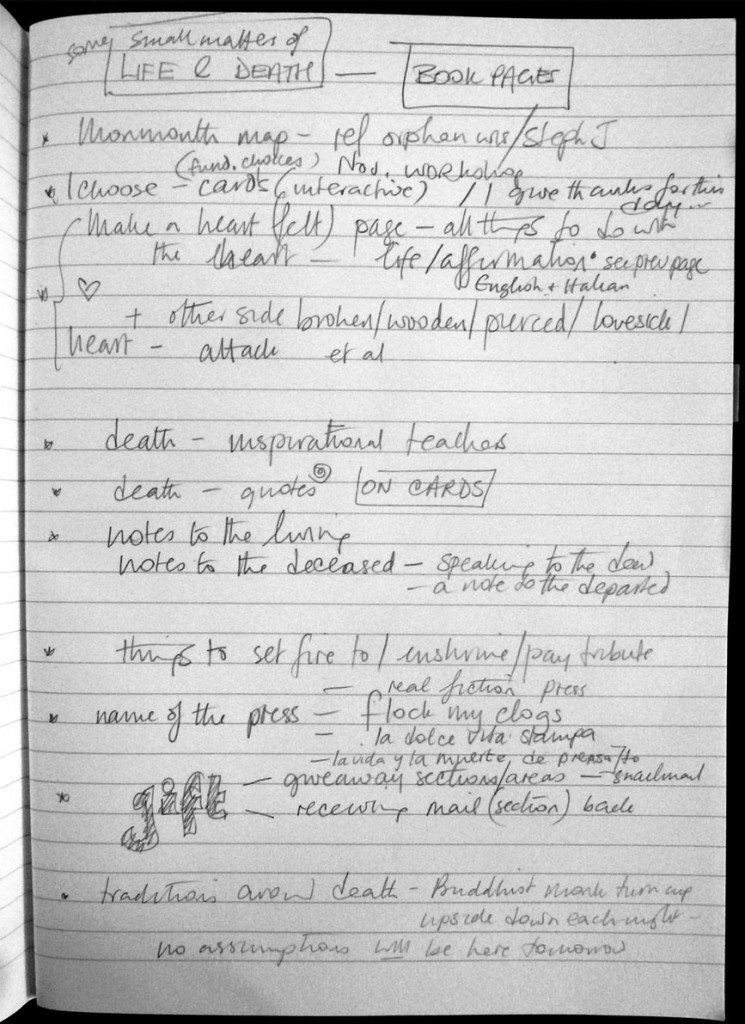 some small matters of
LIFE & DEATH — BOOK PAGES
* Monmouth map – ref orphan urs/Steph J
(fund. choices) Nov. WORKSHOP
* I choose – cards (interactive) // I give thanks for this
day ...
Make a heart (felt) page – all things to do with
the heart — life/affirmation • see prev page
English + Italian
* ♡
+ other side broken/wooden/pierced/lovesick/
heart – attack et al
* death – inspirational teachers
* death – quotes ON CARDS
* notes to the living
notes to the deceased – speaking to the dead
– a note to the departed
* things to set fire to / enshrine/pay tribute
— real fiction press
* name of the press — flock my clogs
— la dolce vita stampa
— la vida y la muerte, de prensa/to
* gift — giveaway sections/areas — snailmail
— receiving mail (section) back
• traditions around death – Buddhist monk turn cup
upside down each night –
no assumptions will be here tomorrow